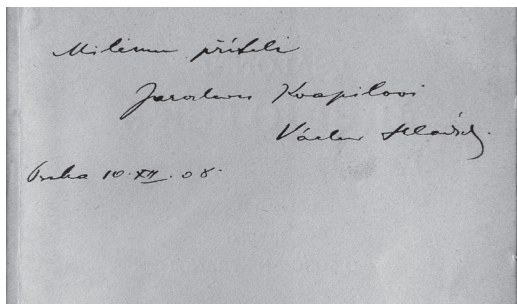 Milému příteli
Jaroslavu Kvapilovi
Václav Hladík.
Praha 10. XII. 08.